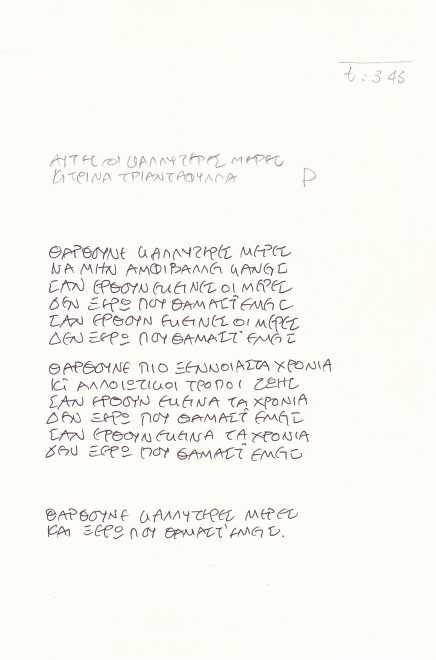 t: 3 45
ΑΥΤΕΣ ΟΙ ΚΑΛΛΥΤΕΡΕΣ ΜΕΡΕΣ
ΚΙΤΡΙΝΑ ΤΡΙΑΝΤΑΦΥΛΛΑ P
ΘΑΡΘΟΥΝΕ ΚΑΛΛΥΤΕΡΕΣ ΜΕΡΕΣ
ΝΑ ΜΗΝ ΑΜΦΙΒΑΛΛΕΙ ΚΑΝΕΙΣ
ΣΑΝ ΕΡΘΟΥΝ ΕΚΕΙΝΕΣ ΟΙ ΜΕΡΕΣ
ΔΕΝ ΞΕΡΩ ΠΟΥ ΘΑΜΑΣΤ' ΕΜΕΙΣ
ΣΑΝ ΕΡΘΟΥΝ ΕΚΕΙΝΕΣ ΟΙ ΜΕΡΕΣ
ΔΕΝ ΞΕΡΩ ΠΟΥ ΘΑΜΑΣΤ' ΕΜΕΙΣ
ΘΑΡΘΟΥΝΕ ΠΙΟ ΞΕΝΝΟΙΑΣΤΑ ΧΡΟΝΙΑ
ΚΙ ΑΛΛΟΙΩΤΙΚΟΙ ΤΡΟΠΟΙ ΖΩΗΣ
ΣΑΝ ΕΡΘΟΥΝ ΕΚΕΙΝΑ ΤΑ ΧΡΟΝΙΑ
ΔΕΝ ΞΕΡΩ ΠΟΥ ΘΑΜΑΣΤ' ΕΜΕΙΣ
ΣΑΝ ΕΡΘΟΥΝ ΕΚΕΙΝΑ ΤΑ ΧΡΟΝΙΑ
ΔΕΝ ΞΕΡΩ ΠΟΥ ΘΑΜΑΣΤ' ΕΜΕΙΣ
ΘΑΡΘΟΥΝΕ ΚΑΛΛΥΤΕΡΕΣ ΜΕΡΕΣ
ΚΑΙ ΞΕΡΩ ΠΟΥ ΘΑΜΑΣΤ' ΕΜΕΙΣ.